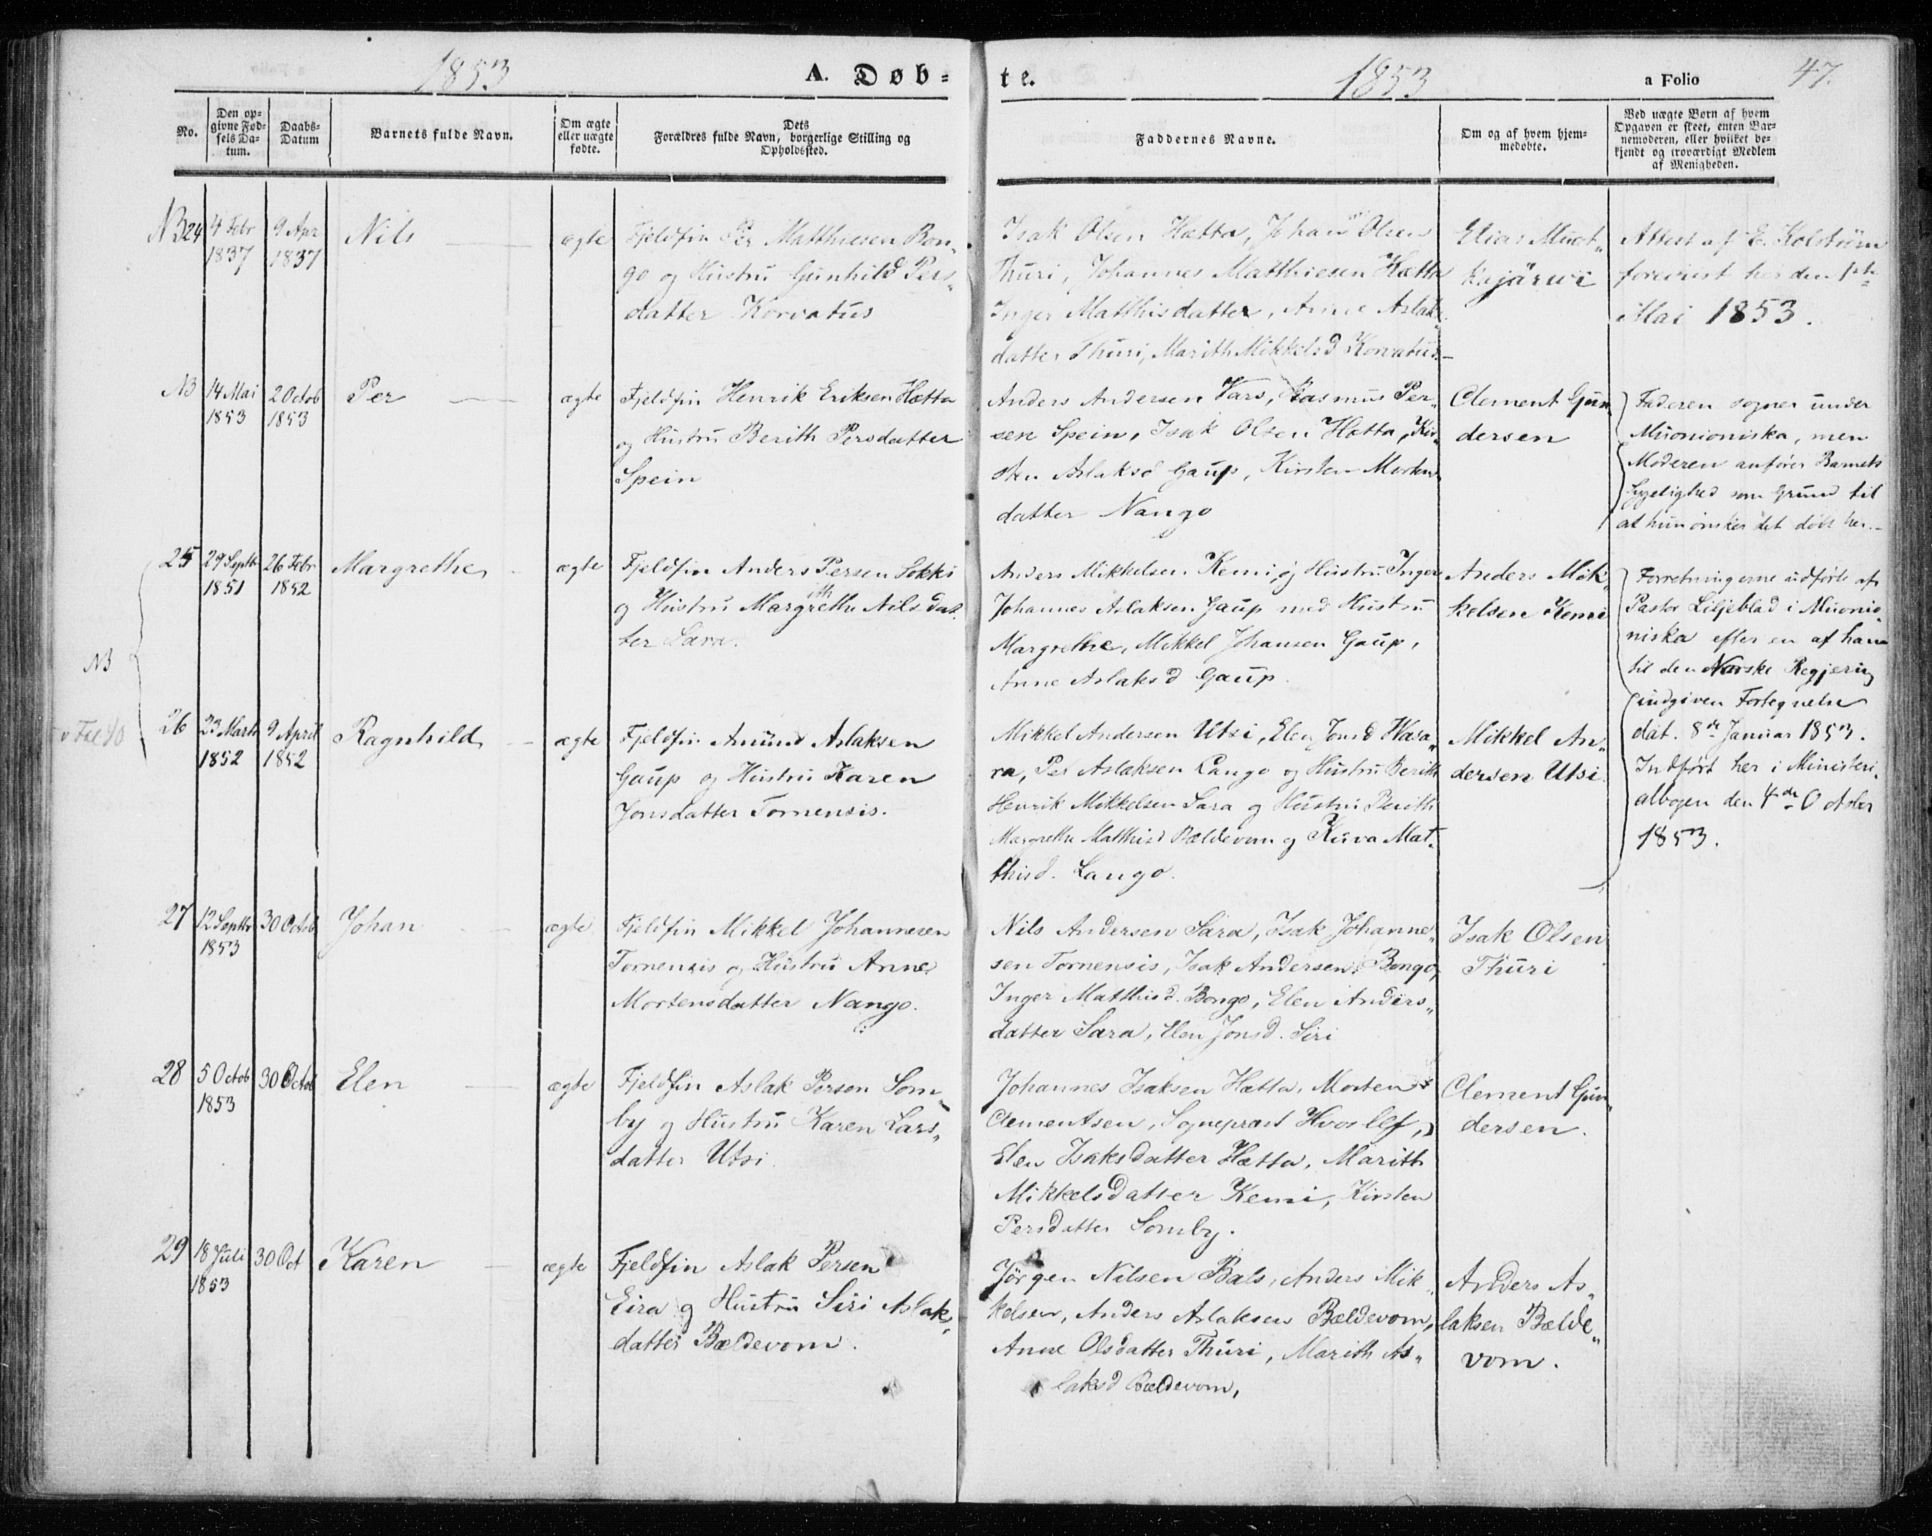 1853
A. Døb-
te.
1853
a Folio
47.
No.
Den op-
givne Fød-
sels Da-
tum.
Daabs-
Datum
Barnets fulde Navn.
Om ægte
eller uægte
fødte.
Dets
Forældres fulde Navn, borgerlige Stilling og
Opholdssted.
Faddernes Navne.
Om og af hvem hjem-
medøbte.
Ved uægte Børn af hvem
Opgaven er skeet, enten Bar-
nemoderen, eller hvilket be-
kjendt og troværdigt Medlem
af Menigheden.
NB 24
4 Febr
1837
9 Apr
1837
Nils
ægte
Fjeldfin Per Matthiesen Bon„
go og Hustru Gunhild Pers„
datter Korvatus
Isak Olsen Hætta, Johan Olsen
Thuri, Johannes Matthiesen Hætta
Inger Matthisdatter, Anne Aslak„
datter Thuri, Marith Mikkelsd Korvatus
Elias Muot„
kajärwi
Attest af E. Kolström
foreviist her den 1ste
Mai 1853.
NB
14 Mai
1853
2 Octob
1853
Per
ægte
Fjeldfin Henrik Eriksen Hætta
og Hustru Berith Persdatter
Spein
Anders Andersen Vars, Rasmus Per„
sen Spein, Isak Olsen Hætta, Kir„
sten Aslaksd Gaup, Kirsten Mortens
datter Nango
Clement Gun
dersen
Faderen sogner under
Muonioniska, men
Moderen anfører Barnets
Sygelighed som Grund til
at hun ønsker det døbt her.
25
29 Septb
1851
26 Febr
1852
Margrethe
ægte
Fjeldfin Anders Persen Sokki
og Hustru Margrethe Nilsdat„
ter Sara.
Anders Mikkelsen Kemi og Hustru Inger
Johannes Aslaksen Gaup med Hustru
Margrethe, Mikkel Johansen Gaup,
Anne Aslaksd Gaup.
Anders Mik
kelsen Kemi
Forretningerne udførte af
Pastor Liljeblad i Muonio
niska efter en af ham
til den Norske Regjering
indgiven Fortegnelse
dat. 8de Januar 1853.
Indført her i Ministeri„
albogen den 4de October
1853.
NB
v Fol 40
26
23 Marts
1852
9 April
1852
Ragnhild
ægte
Fjeldfin Amund Aslaksen
Gaup og Hustru Karen
Jonsdatter Tornensis.
Mikkel Andersen Utsi, Elen Jonsd Wasa„
ra, Per Aslaksen Lango og Hustru Berith
Henrik Mikkelsen Sara og Hustru Berith
Margrethe Matthisd Bældevom og Kuva Mat„
thisd. Lango.
Mikkel An„
dersen Utsi
27
12 Septbr
1853
30 Octob
Johan
ægte
Fjeldfin Mikkel Johannesen
Tornensis og Hustru Anne
Mortensdatter Nango.
Nils Andersen Sara, Isak Johanne„
sen Tornensis, Isak Andersen Bongo,
Inger Matthisd. Bongo, Elen Anders„
datter Sara, Elen Jonsd. Siri
Isak Olsen
Thuri
28
5 Octob
1853
30 Octob
Elen
ægte
Fjeldfin Aslak Persen Som„
by og Hustru Karen Lars„
datter Utsi.
Johannes Isaksen Hætta, Morten
Clementsen, Sogneprest Hvoslef,
Elen Isaksdatter Hætta, Marith
Mikkelsdatter Kemi, Kirsten
Persdatter Somby.
Clement Gun„
dersen.
29
18 Juli
1853
30 Oct
Karen
ægte
Fjeldfin Aslak Persen
Eira og Hustru Siri Aslak„
datter Bældevom.
Jørgen Nilsen Bals, Anders Mik„
kelsen, Anders Aslaksen Bældevom,
Anne Olsdatter Thuri, Marith As„
laksd Bældevom,
Anders As„
laksen Bælde„
vom.